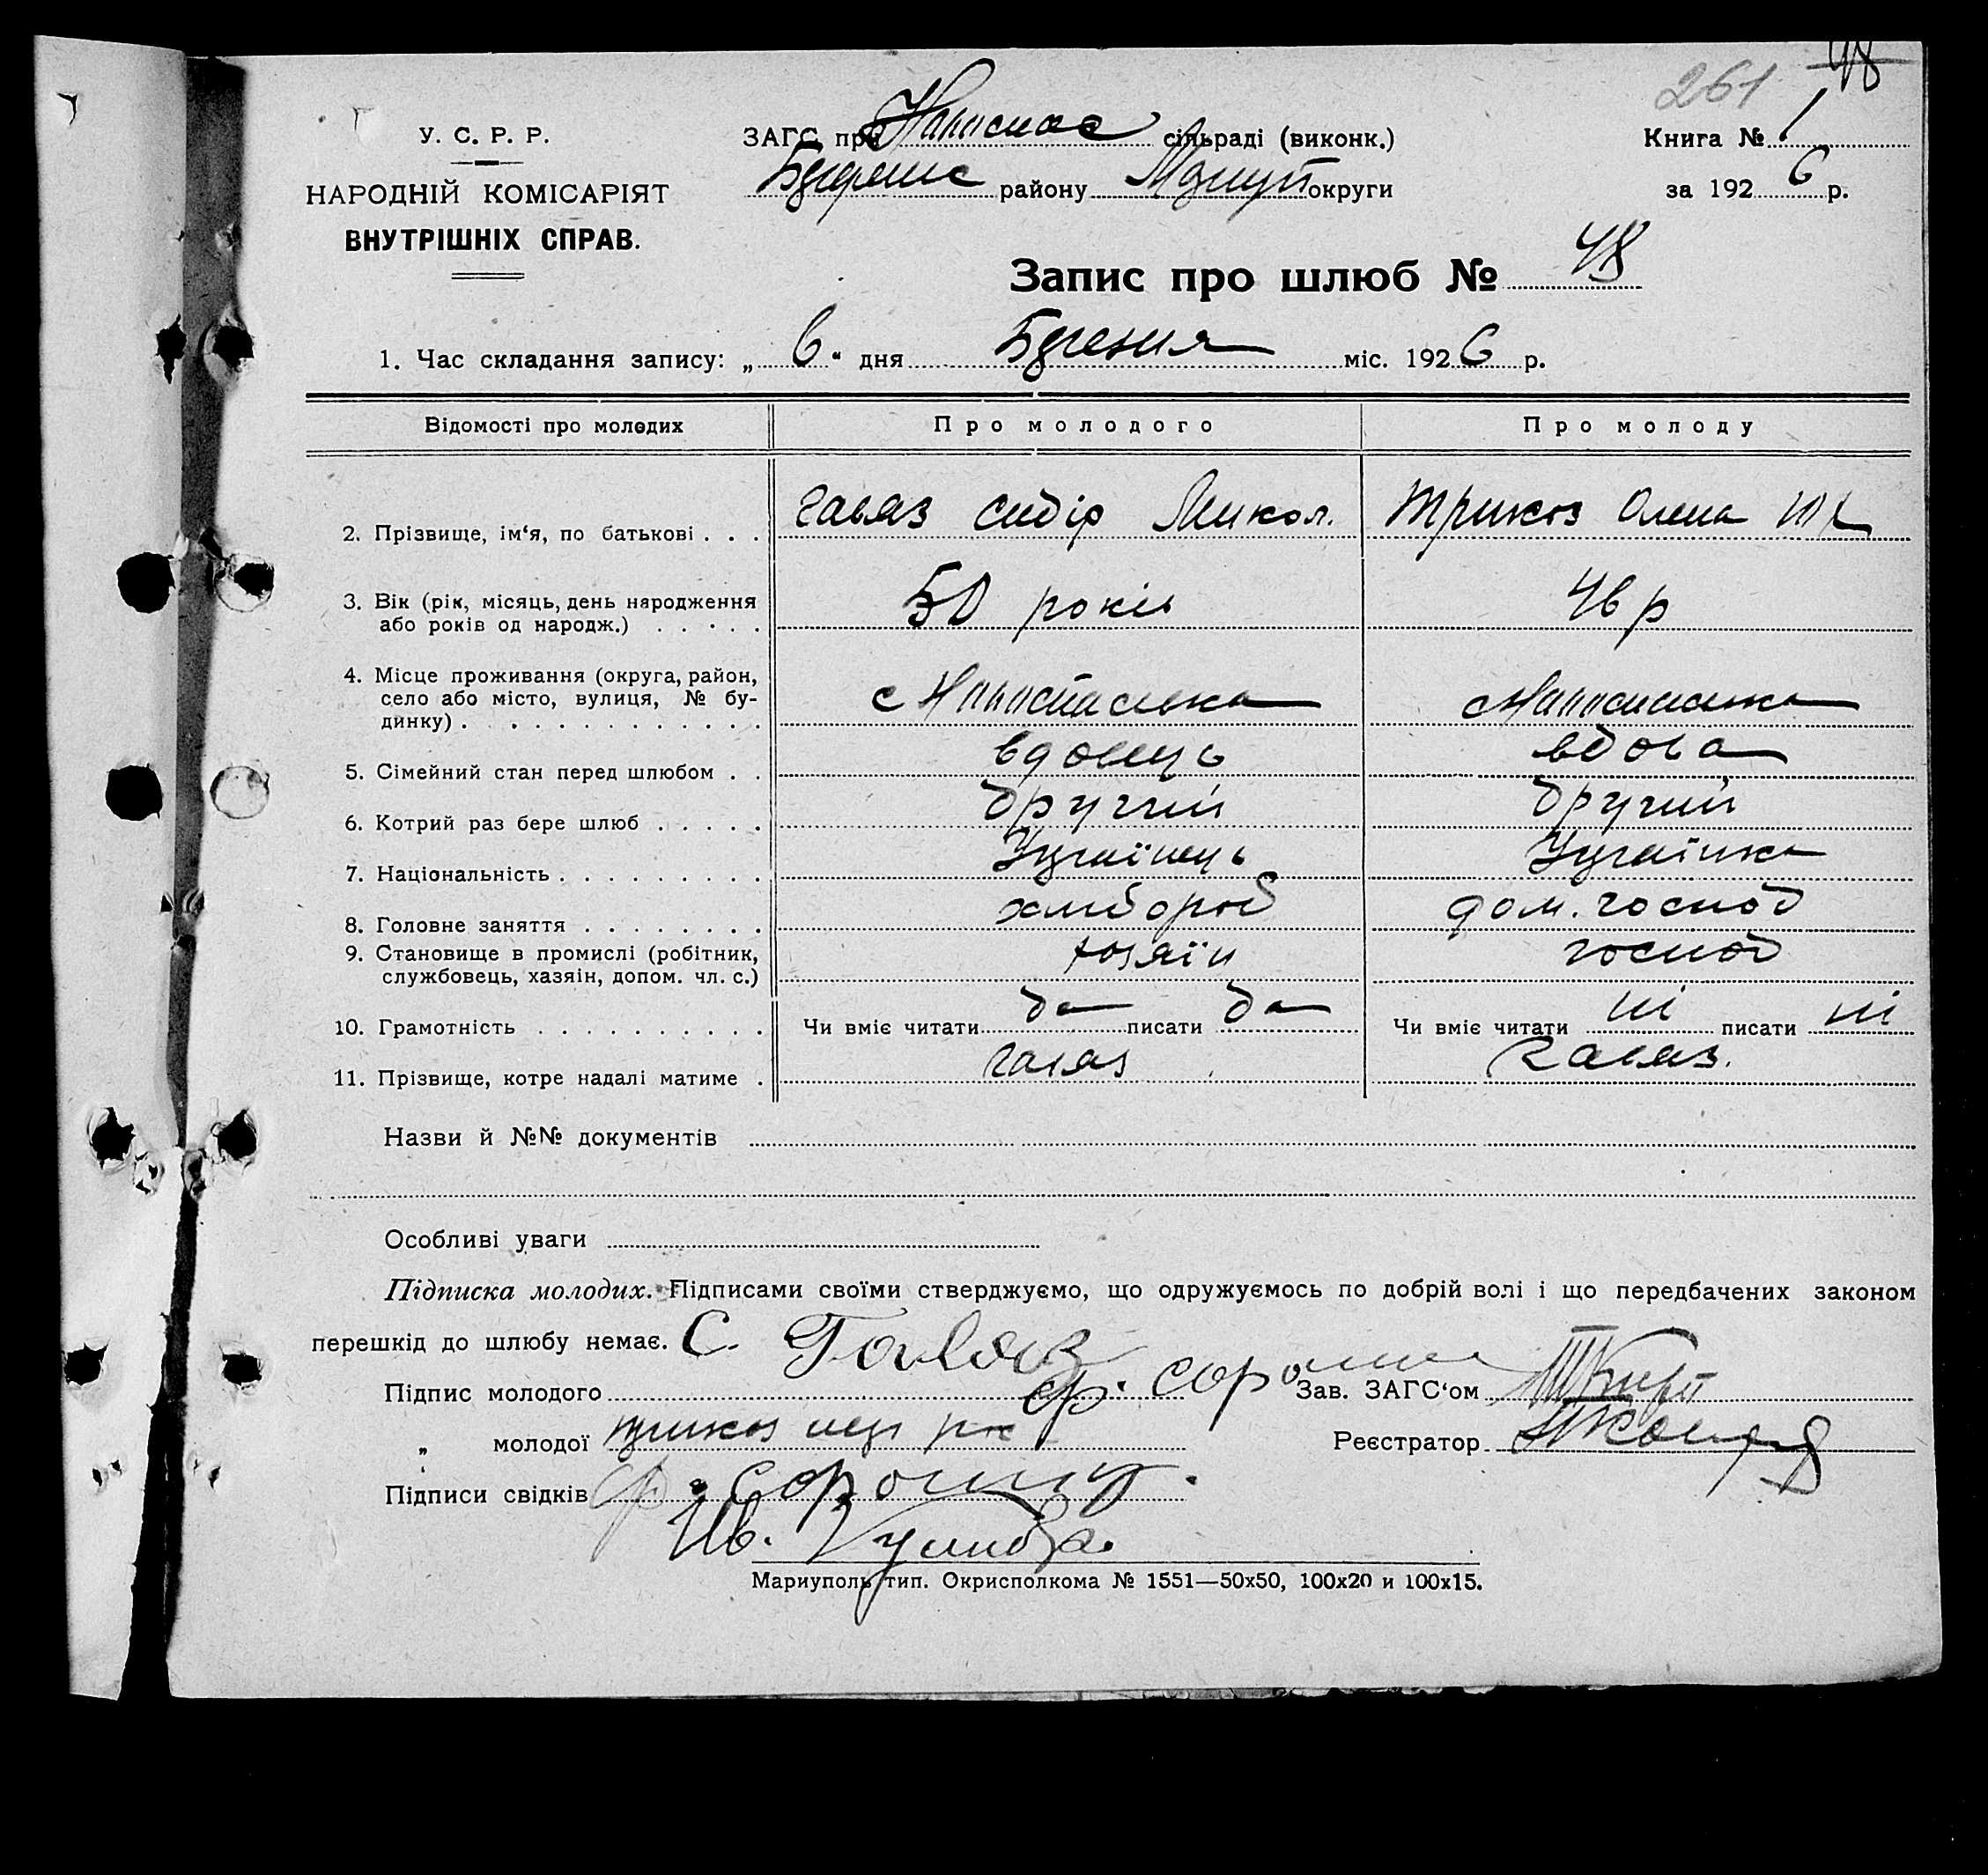 261 48
У. С. Р. Р.
НАРОДНІЙ КОМІСАРІЯТ
ВНУТРІШНІХ СПРАВ.
ЗАГС при сільраді (виконк.)
району округи
Книга № 1
за 1926 р.
Запис про шлюб № 48
1. Час складання запису: „ 6 “ дня Березня міс. 1926 р.
Відомості про молодих Про молодого Про молоду
2. Прізвище, ім‘я, по батькові . . . Гаваз Сидір Микол. Трикоз Олена
3. Вік (рік, місяць, день народження
або років од народж.) . . . . . 50 років 46 р
4. Місце проживання (округа, район,
село або місто, вулиця, № бу-
динку) . . . . . . . . . . . . с
5. Сімейний стан перед шлюбом . . вдовець вдова
6. Котрий раз бере шлюб . . . . . другий другий
7. Національність . . . . . . . . . Українець Українка
8. Головне заняття . . . . . . . . хлібороб дом. господ
9. Становище в промислі (робітник,
службовець, хазяін, допом. чл. с.) хозяїн господ
10. Грамотність . . . . . . . . . . Чи вміє читати да писати да Чи вміє читати ні писати ні
11. Прізвище, котре надалі матиме . Гаваз Гаваз.
Назви й №№ документів
Особливі уваги
Підписка молодих. Підписами своїми стверджуємо, що одружуємось по добрій волі і що передбачених законом
перешкід до шлюбу немає. С. Гаваз
Підпис молодого Зав. ЗАГС‘ом
„ молодої Трикоз Реєстратор
Підписи свідків
Ив.
Мариуполь тип. Окрисполкома № 1551—50х50, 100х20 и 100х15.